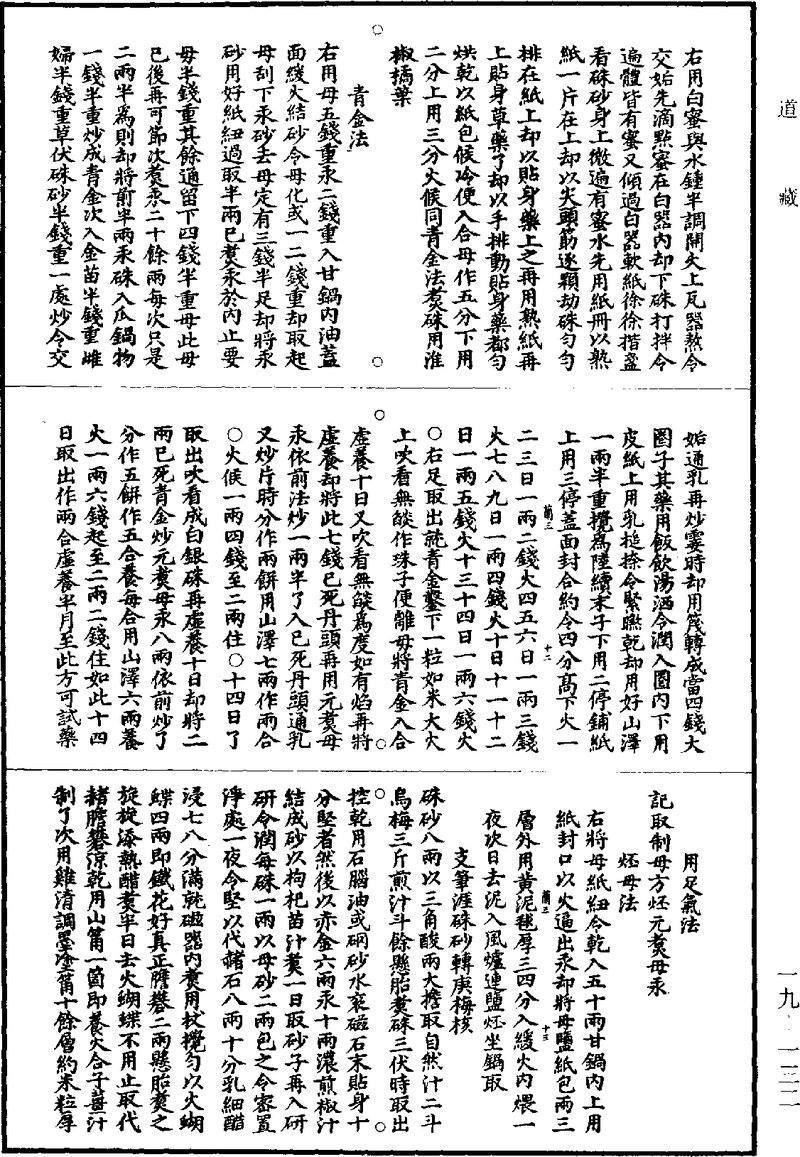 道藏
右用白蜜與水鍾半調開火上瓦器熬令
交姤先滴點蜜在白器內却下硃打拌令
遍體皆有蜜又傾過白器軟紙徐徐揩盞
看硃砂身上微遍有蜜水先用紙冊以熟
紙一片在上却以尖頭筯逐顆劫硃勻勻
排在紙上却以貼身藥上之再用熟紙再
上貼身草藥了却以手排動貼身藥都勻
烘乾以紙包候冷便入合母作五分下用
二分上用三分火候同青金法煑硃用淮
椒橘葉
青金法
右用母五錢重汞二錢重入甘鍋內油蓋
面緩火結砂令母化或一二錢重却取起
母刮下汞砂丢母定有三錢半足却將汞
砂用好紙紐過取半兩已煑汞於內止要
母半錢重其餘通留下四錢半重母此母
已後再可節次煑汞二十餘兩每次只是
二兩半為則却將前半兩汞硃入瓜鍋物
一錢半重炒成青金次入金苗半錢重雌
婦半錢重草伏硃砂半錢重一處炒令交
姤通乳再炒霎時却用篾轉成當四錢大
圈子其藥用飯飲湯洒令潤入圈內下用
皮紙上用乳槌捺令緊㬠乾却用好山澤
一兩半重攪為陸續末子下用二停鋪紙
上用三停蓋面封合約令四分高下火一
二三日一兩二錢火四五六日一兩三錢
蘭三 十二
火七八九日一兩四錢火十日十一十二
日一兩五錢火十三十四日一兩六錢火
○右足取出㲉青金鑿下一粒如米大火
上吹看無燄作珠子便離母將青金入合
虛養十日又吹看無燄為度如有焰再將
虛養却將此七錢已死丹頭再用元煑母
汞依前法炒一兩半了入已死丹頭通乳
又炒片時分作兩餅用山澤七兩作兩合
○火候一兩四錢至二兩住○十四日了
取出吹看成白銀硃再虛養十日却將二
兩已死青金炒元煑母汞八兩依前炒了
分作五餅作五合養每合用山澤六兩養
火一兩六錢起至二兩二錢住如此十四
日取出作兩合虛養半月至此方可試藥
用足氣法
記取制母方炁元煑母汞
炁母法
右將母紙紐令乾入五十兩甘鍋內上用
紙封口以火逼出汞却將母鹽紙包兩三
層外用黃泥毬厚三四分入緩火內煨一
蘭三 十三
夜次日去泥入風爐連鹽炁坐鍋取
支筆涯硃砂轉庚梅核
硃砂八兩以三角酸兩大擔取自然汁二斗
烏梅三斤煎汁斗餘懸胎煑硃三伏時取出
控乾用石腦油或硇砂水衮磁石末貼身十
分堅者然後以赤金六兩汞十兩濃煎椒汁
結成砂以枸杞苗汁煑一日取砂子再入研
研令潤每硃一兩以母砂二兩包之令密置
淨處一夜令堅以代赭石八兩十分乳細醋
浸七八分滿乾磁器內煑用杖攪勻以火蝴
蝶四兩即鐵花好真正膽礬二兩懸胎煑之
旋旋添熱醋煑半日去火蝴蝶不用止取代
赭膽礬涼乾用山筩一箇即養火合子薑汁
制了次用雞清調墨塗筩十餘層約米粒厚
一九·一三二